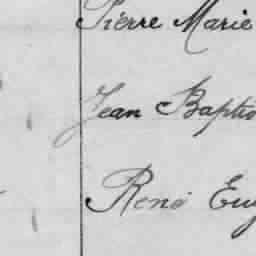 Pierre Marie
Jean Baptis
René Eug